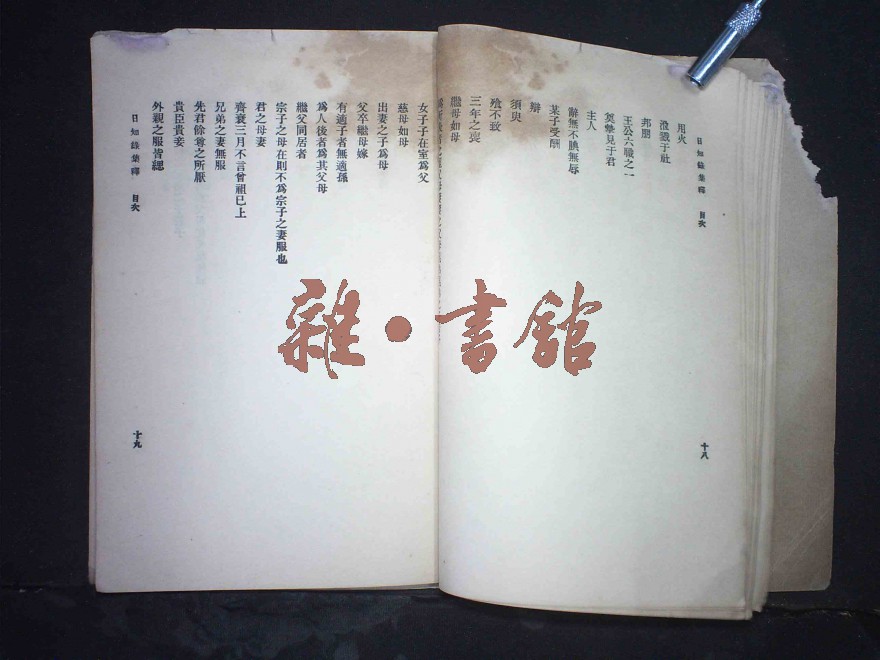 日知錄集釋 目次
用火
涖戮于社
邦朋
王公六職之一
奠摯見于君
主人
辭無不腆無辱
某子受酬
辯
須臾
飧不致
三年之喪
繼母如母
十八
女子子在室爲父
慈母如母
出妻之子爲母
父卒繼母嫁
有適子者無適孫
爲人後者爲其父母
繼父同居者
宗子之母在則不爲宗子之妻服也
君之母妻
齊衰三月不言曾祖已上
兄弟之妻無服
先君餘尊之所厭
貴臣貴妾
外親之服皆緦
日知錄集釋 目次
十九
雜·書館